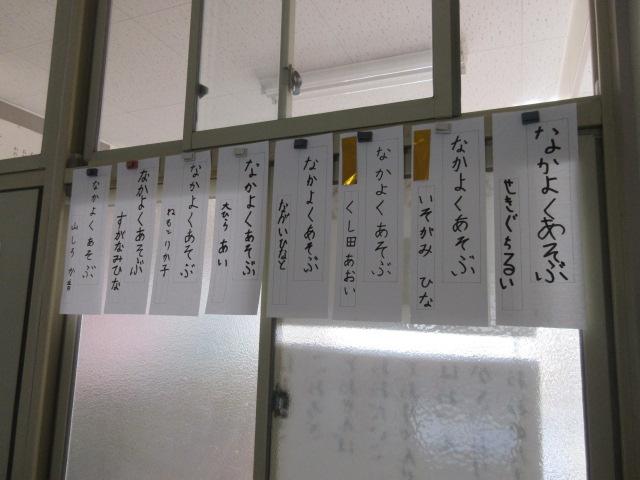 なかよくあそぶ
せきぐちるい
なかよくあそぶ
いそがみ ひな
なかよくあそぶ
くし田あおい
なかよくあそぶ
ながいひなと
なかよくあそぶ
あい
なかよくあそぶ
ねもとりか子
なかよくあそぶ
すがなみひな
なかよくあそぶ
山しろ